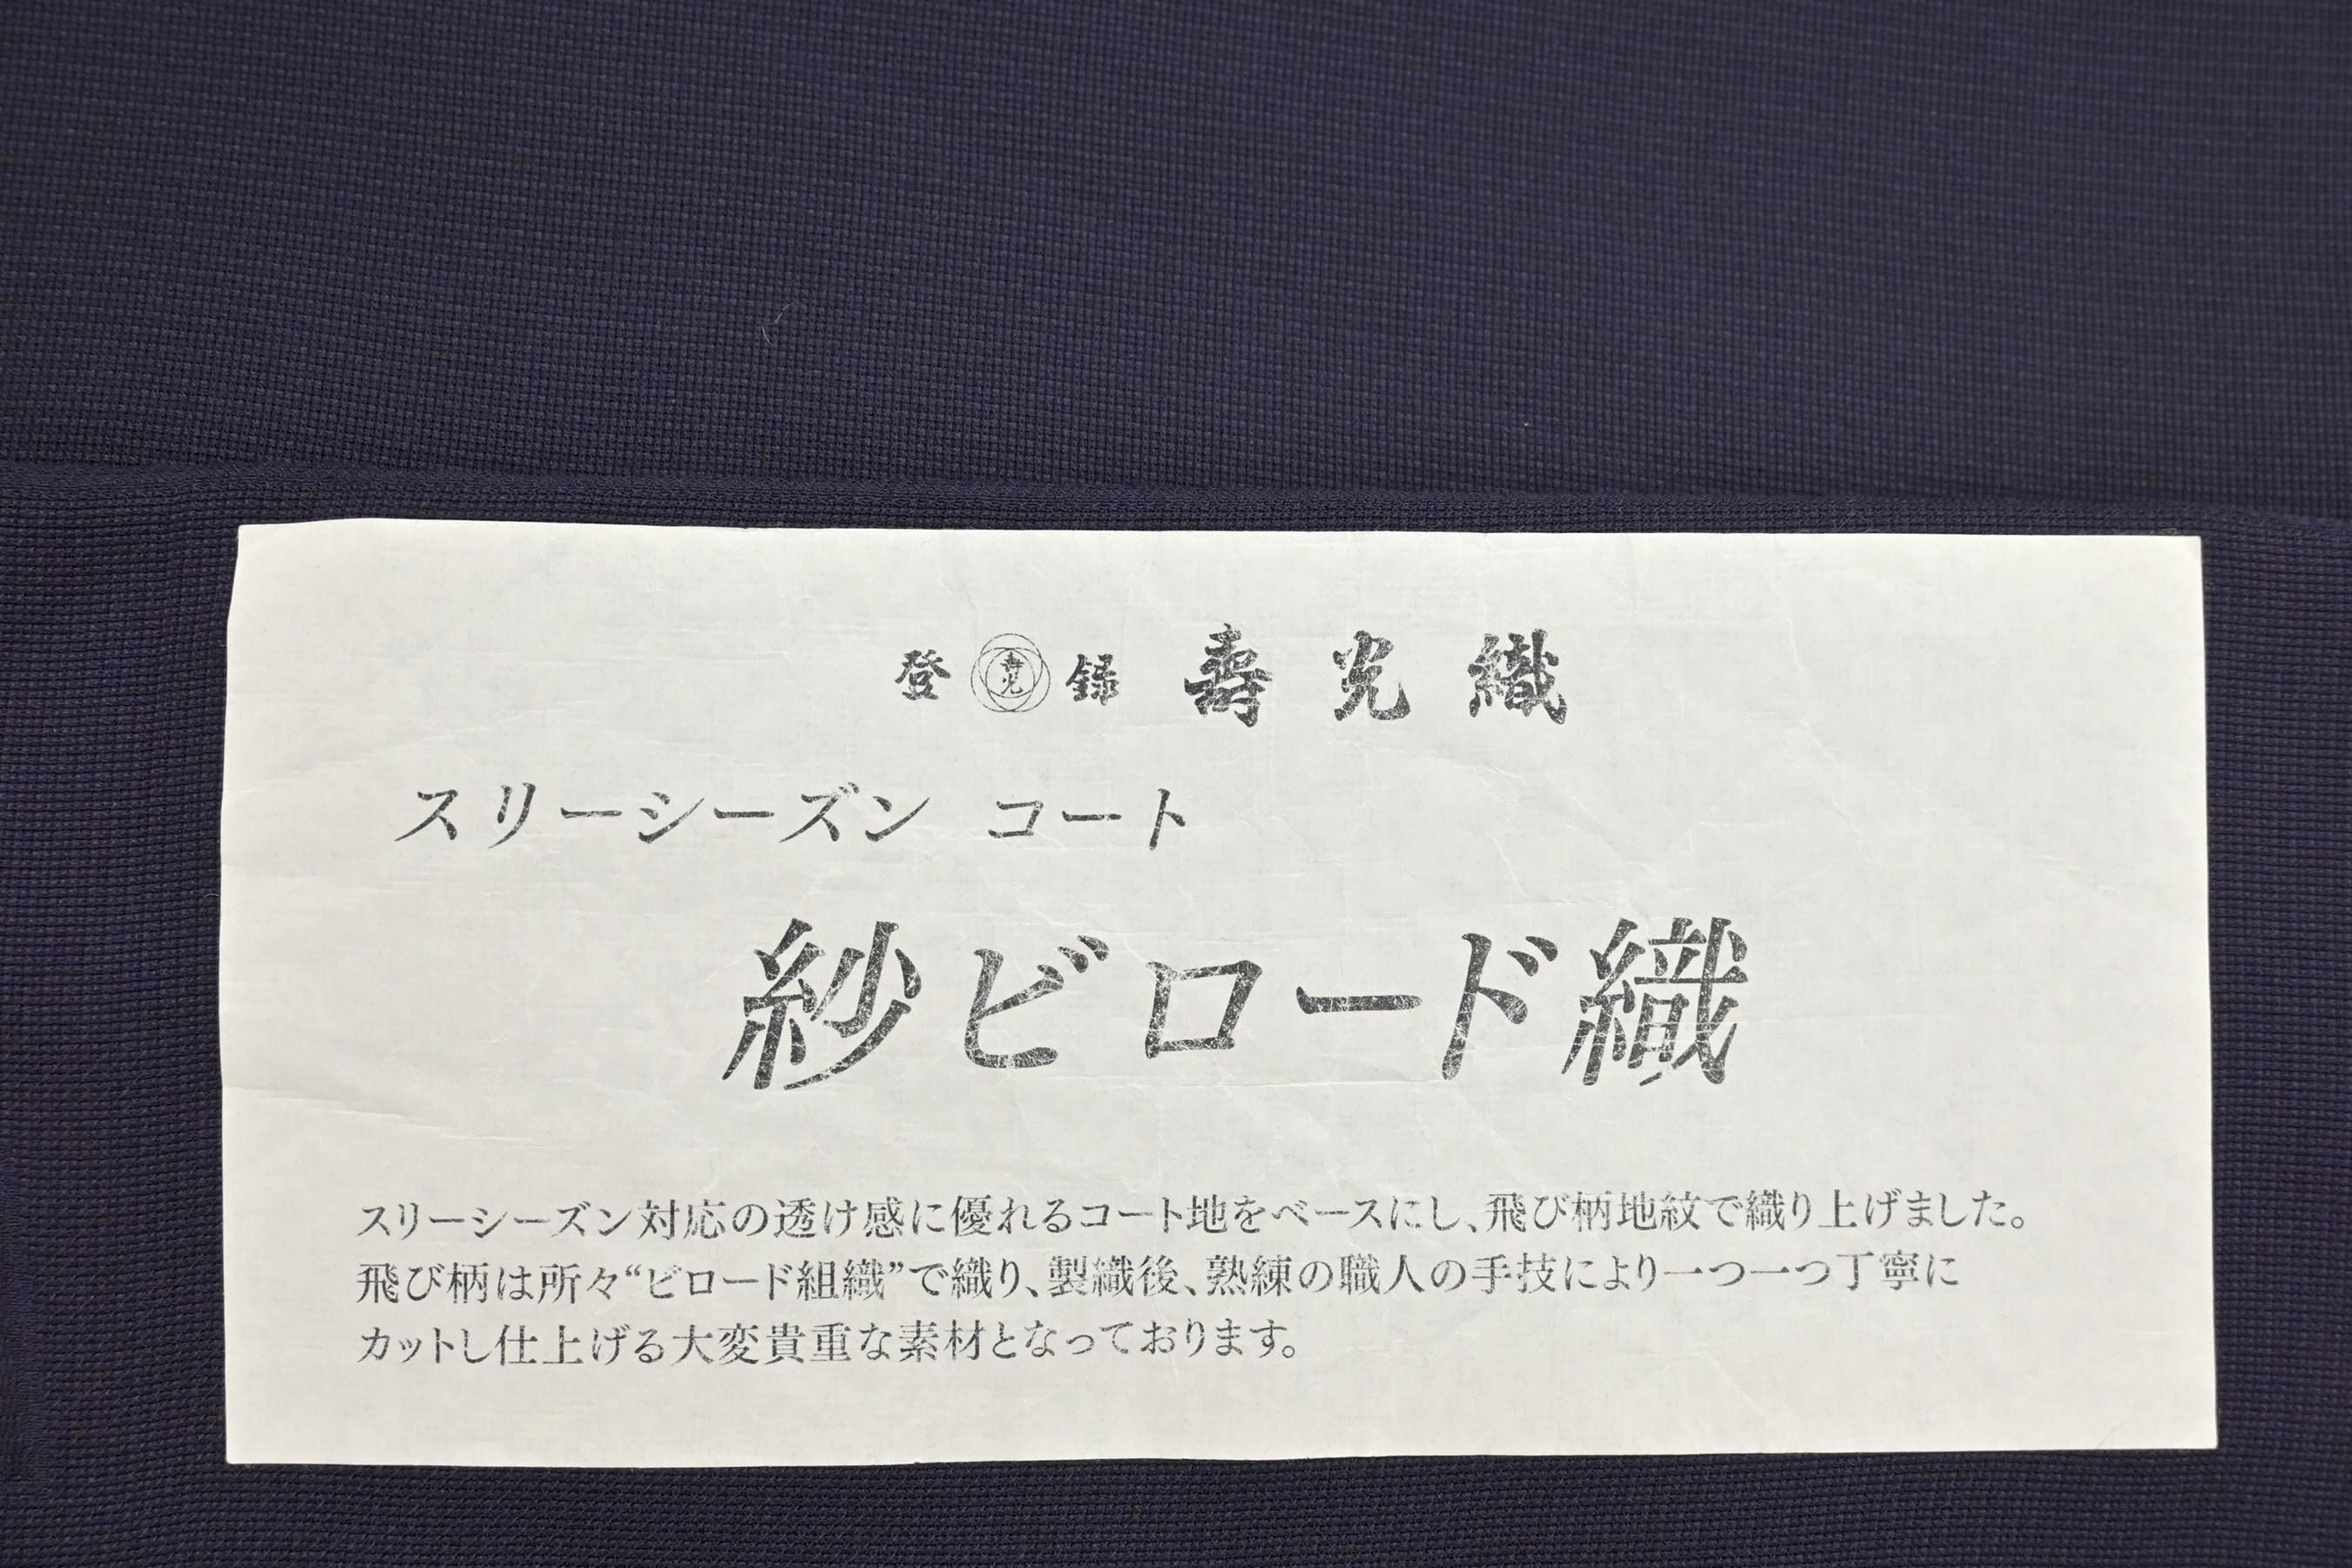 登 壽光 録 壽光織
スリーシーズン コート
紗ビロード織
スリーシーズン対応の透け感に優れるコート地をベースにし、飛び柄地紋で織り上げました。
飛び柄は所々“ビロード組織”で織り、製織後、熟練の職人の手技により一つ一つ丁寧に
カットし仕上げる大変貴重な素材となっております。